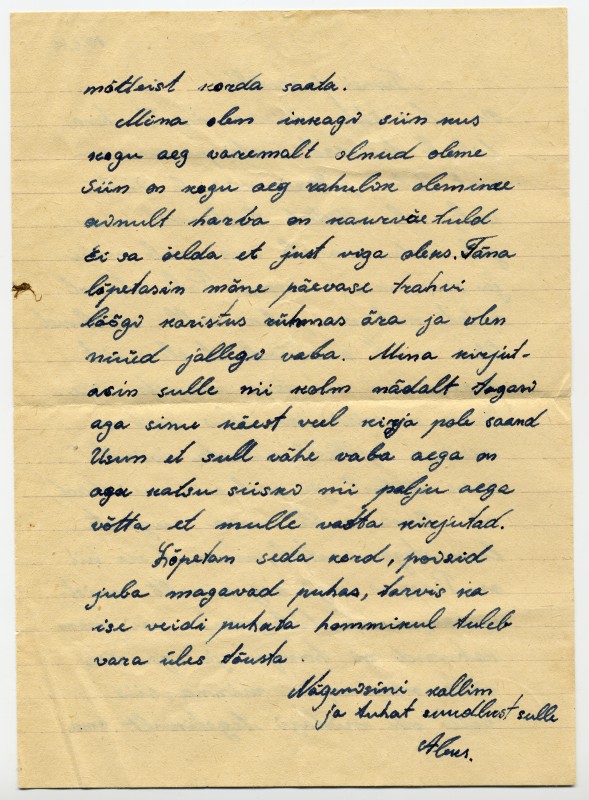 mõtteist korda saata.
Mina olen ikkagi siin kus
kogu aeg varemalt olnud oleme
Siin on kogu aeg rahulik olemine
ainult harva on kaurväe tuld
Ei sa öelda et just viga oleks. Täna
lõpetasin mõne päevase trahvi
löögi karistus rühmas ära ja olen
nüüd jallegi vaba. Mina kirjut-
asin sulle nii kolm nädalt tagasi
aga sinu käest veel kirja pole saand
Usun et sull vähe vaba aega on
aga katsu siiski nii palju aega
võtta et mulle vasta kirjutad.
Lõpetan seda kord, poisid
juba magavad puhas, tarvis ka
ise veidi puhata hommikul tuleb
vara üles tõusta.
Nägemisini kallim
ja tuhat suudlust sulle